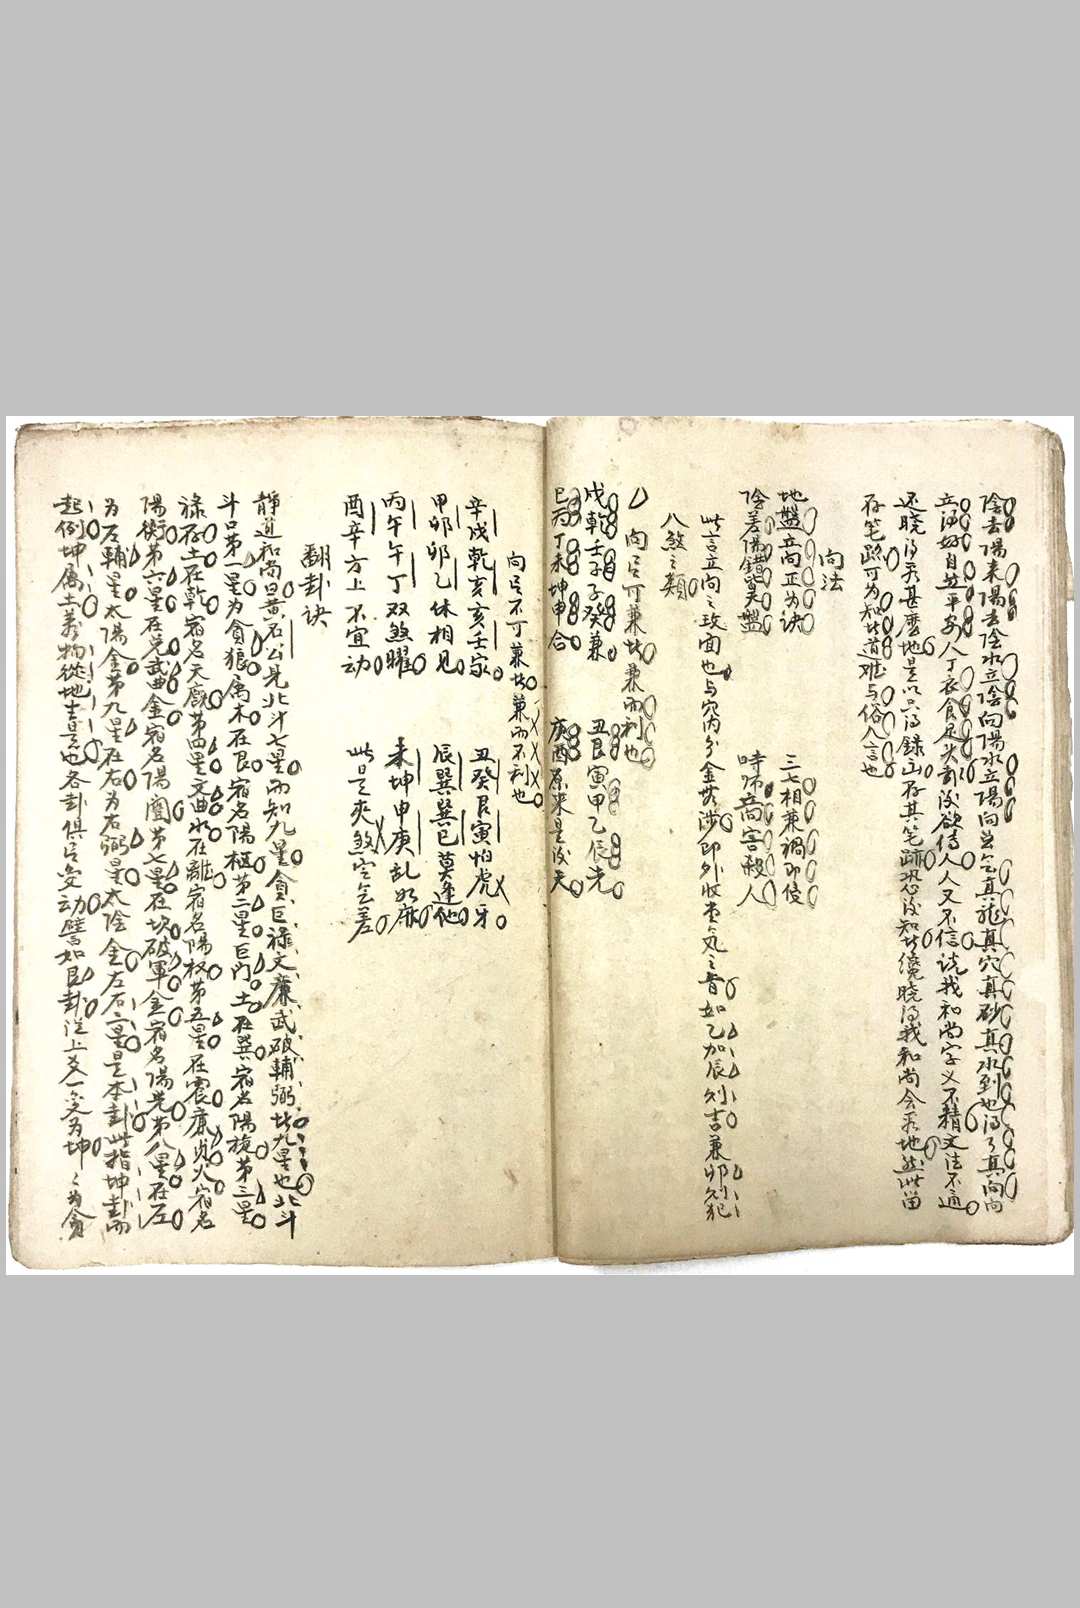 陰去陽来陽去陰水立陰向陽水立陽向岂乏真龍真穴真砂真水到也得了真向向
立得好自然平安人丁衣食足矣却没欲傳人人又不信说我和尚字义不精文法不通
还晓得系甚麽地是以只得錄出存其笔跡恐後知此儀晓得我和尚会系地然此留
存笔跡可为知此道难与俗人言也
向法
地盤立向正为诀
三七相兼禍即侵
陰差陽錯莫盤
時师立向害殺人
此言立向之攻面也与穴内分金甘涉即外收堂气之旨如乙加辰刘吉兼卯刘犯
八煞之類
向言可兼此兼而利也
戊乾壬子子癸兼
丑艮寅甲乙辰先
巳丙丁未坤申合
庚酉原来是後天
向言不可兼此兼而不利也
辛戌乾亥亥壬家
丑癸艮寅怕虎牙
甲卯卯乙休相见
辰巽巽巳莫逢他
丙午午丁双煞曜
未坤申庚乱如麻
酉辛方上不宜动
此是夾煞定乞差
翻卦诀
靜道和尚曰黄石公見北斗七星而知九星貪巨禄文廉武破輔弼此九星也北斗
斗口第一星为貪狼属木在艮宿名陽樞第二星巨门土在巽宿名陽旋第三星
禄存土在乾宿名天璣第四星文曲水在離宿名陽权第五星在震廉贞火宿名
陽衡第六星在兑武曲金宿名陽闿第七星在坎破軍金宿名陽光第八星在左
为左輔星太陽金第九星在右为右弼是太陰金左右二星是本卦此指坤卦而
起例坤属土萬物從地生是也各卦俱言变动譬如艮卦從上爻一变为坤坤为貪